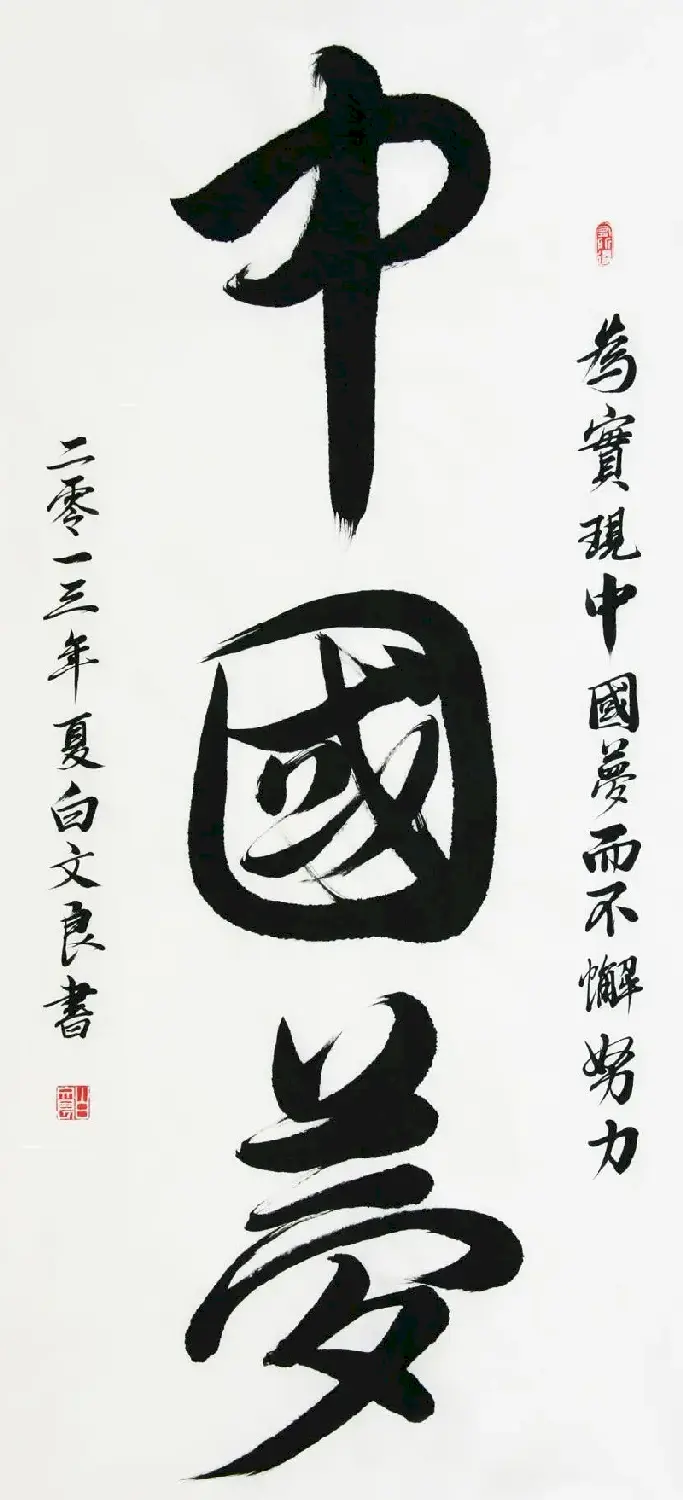 為實現中國夢而不懈努力
中國夢
二零一三年夏白文良書